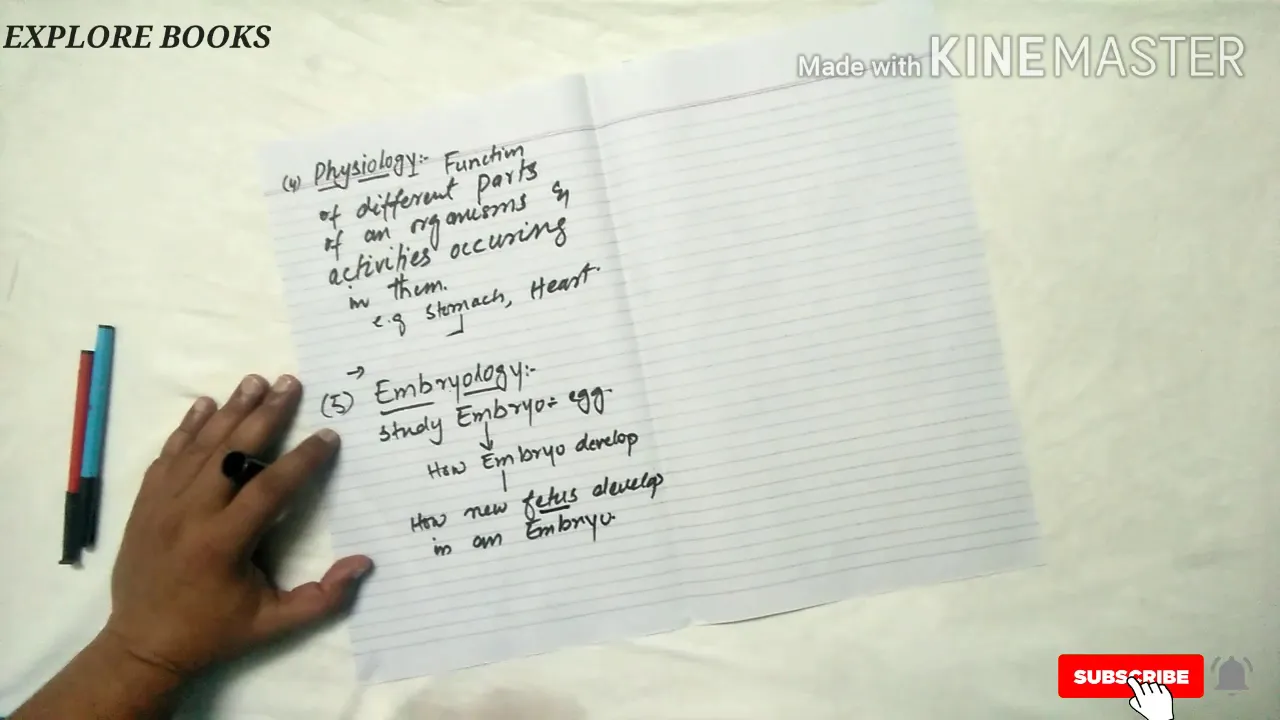 EXPLORE BOOKS
Made with KINEMASTER
(4) Physiology:- Function
of different parts
of an organisms &
activities occuring
in them.
e.g stomach, Heart.
→
(5) Embryology:-
study Embryo= egg.
How Embryo develop
How new fetus develop
in an Embryo.
SUBSCRIBE